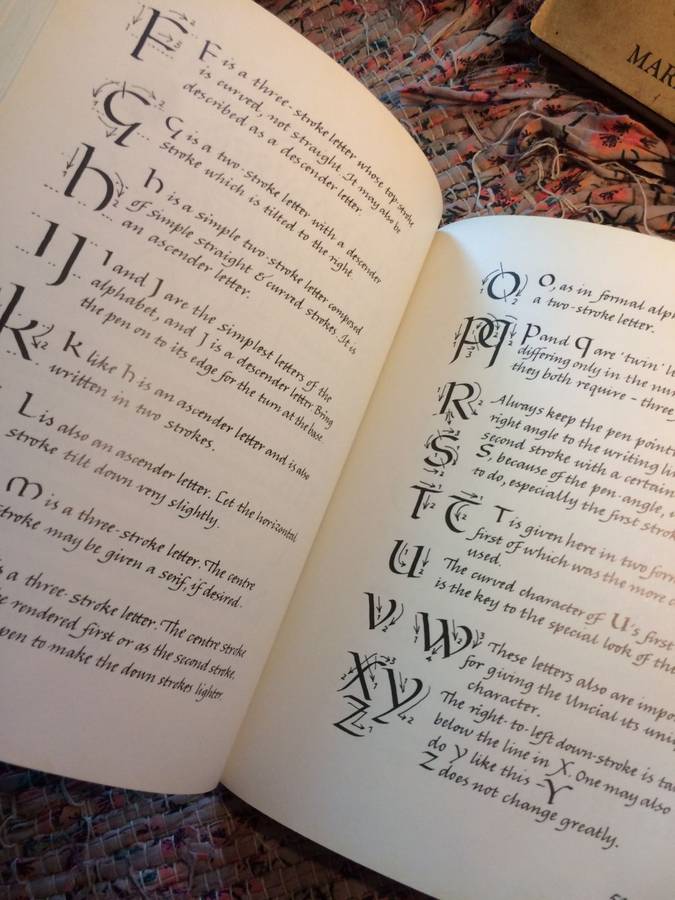 F F is a three-stroke letter whose top-stroke
is curved, not straight. It may also be
described as a descender letter.
G G is a two-stroke letter with a descender
stroke which is tilted to the right.
h h is a simple two-stroke letter composed
of simple straight & curved strokes. It is
an ascender letter.
I J I and J are the simplest letters of the
alphabet, and J is a descender letter. Bring
the pen on to its edge for the turn at the base.
k k like h is an ascender letter and is also
written in two strokes.
L is also an ascender letter. Let the horizontal
stroke tilt down very slightly.
m is a three-stroke letter. The centre
stroke may be given a serif, if desired.
a three-stroke letter. The centre stroke
rendered first or as the second stroke.
pen to make the down strokes lighter
O O, as in formal
a two-stroke letter.
p q p and q are 'twin'
differing only in the
they both require - three
R Always keep the pen
right angle to the writing
second stroke with a certain
S S, because of the pen-angle,
to do, especially the first
T T T is given here in two
first of which was the more
used.
U The curved character of U's first
is the key to the special look of the
V W These letters also are
for giving the Uncial its
character.
X Y The right-to-left down-stroke is
below the line in X. One may also
do y like this - Y
Z Z does not change greatly.
MAR